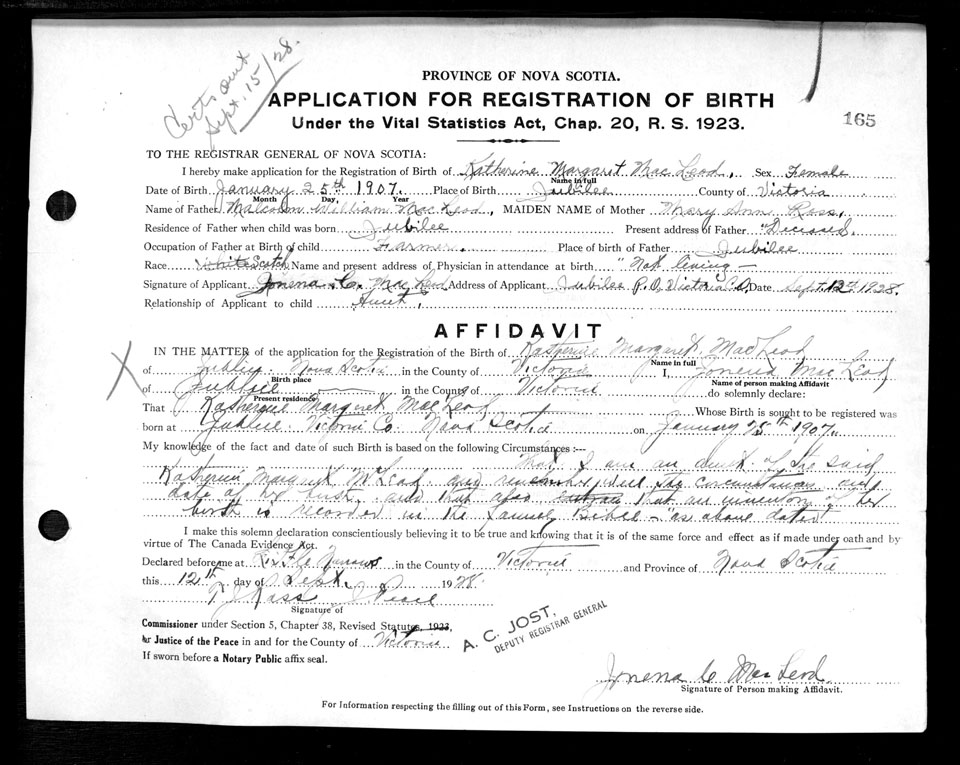 Certs out
Sept. 15/28.
PROVINCE OF NOVA SCOTIA.
APPLICATION FOR REGISTRATION OF BIRTH
Under the Vital Statistics Act, Chap. 20, R. S. 1923.
165
TO THE REGISTRAR GENERAL OF NOVA SCOTIA:
I hereby make application for the Registration of Birth of Katherine Margaret Mac Leod. Sex Female
Name in full
Date of Birth January 25th 1907. Place of Birth Jubilee County of Victoria
Month Day Year
Name of Father Malcolm William Mac Leod, MAIDEN NAME of Mother Mary Ann Ross.
Residence of Father when child was born Jubilee Present address of Father "Deceased.
Occupation of Father at Birth of child Farmer. Place of birth of Father Jubilee
Race White Scotch Name and present address of Physician in attendance at birth "Not living —
Signature of Applicant Jonena C. Mac Leod Address of Applicant Jubilee P.O. Victoria Co. Date Sept. 12th 1928.
Relationship of Applicant to child Aunt.
AFFIDAVIT
X
IN THE MATTER of the application for the Registration of the Birth of Katherine Margaret MacLeod
Name in full
of Jubilee Nova Scotia in the County of Victoria I, Jonena Mac Leod
Birth place Name of person making Affidavit
of Jubilee in the County of Victoria do solemnly declare:
Present residence
That Katherine Margaret Mac Leod Whose Birth is sought to be registered was
born at Jubilee Victoria Co. Nova Scotia on January 25th 1907.
My knowledge of the fact and date of such Birth is based on the following Circumstances:—
That I am an aunt of the said
Katherine Margaret McLeod and remember well the circumstances and
date of her birth and that also that an of her
birth is recorded in the family Bible — "as above dated
I make this solemn declaration conscientiously believing it to be true and knowing that it is of the same force and effect as if made under oath and by
virtue of The Canada Evidence Act.
Declared before me at Little Narrows in the County of Victoria and Province of Nova Scotia
this 12th day of Sept. 1928.
Signature of
Commissioner under Section 5, Chapter 38, Revised Statutes, 1923,
or Justice of the Peace in and for the County of Victoria
If sworn before a Notary Public affix seal.
A. C. JOST,
DEPUTY REGISTRAR GENERAL
Jonena C Mac Leod.
Signature of Person making Affidavit.
For Information respecting the filling out of this Form, see Instructions on the reverse side.